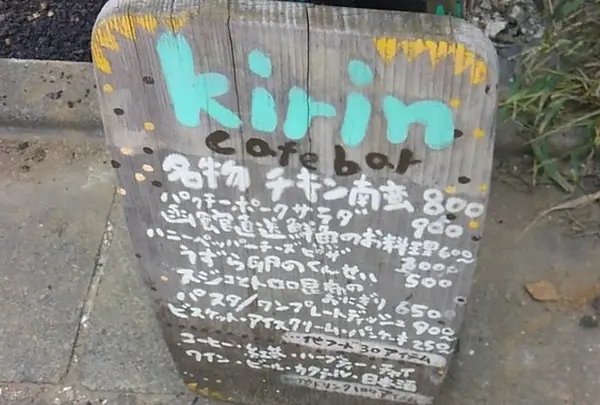 kirin
cafe bar
名物 チキン南蛮 800
パクチーポークサラダ 900
函館直送鮮魚のお料理 600
ハニーペッパーチーズピザ 800
うずら卵のくんせい 500
スジコとトロロ昆布の
おにぎり 650
パスタ/ワンプレートディッシュ 900
ビスケット・アイスクリーム・パンケーキ 250
他フード30アイテム
コーヒー・紅茶・ハーブティー・チャイ
ワイン・ビール・カクテル・日本酒
アイテム